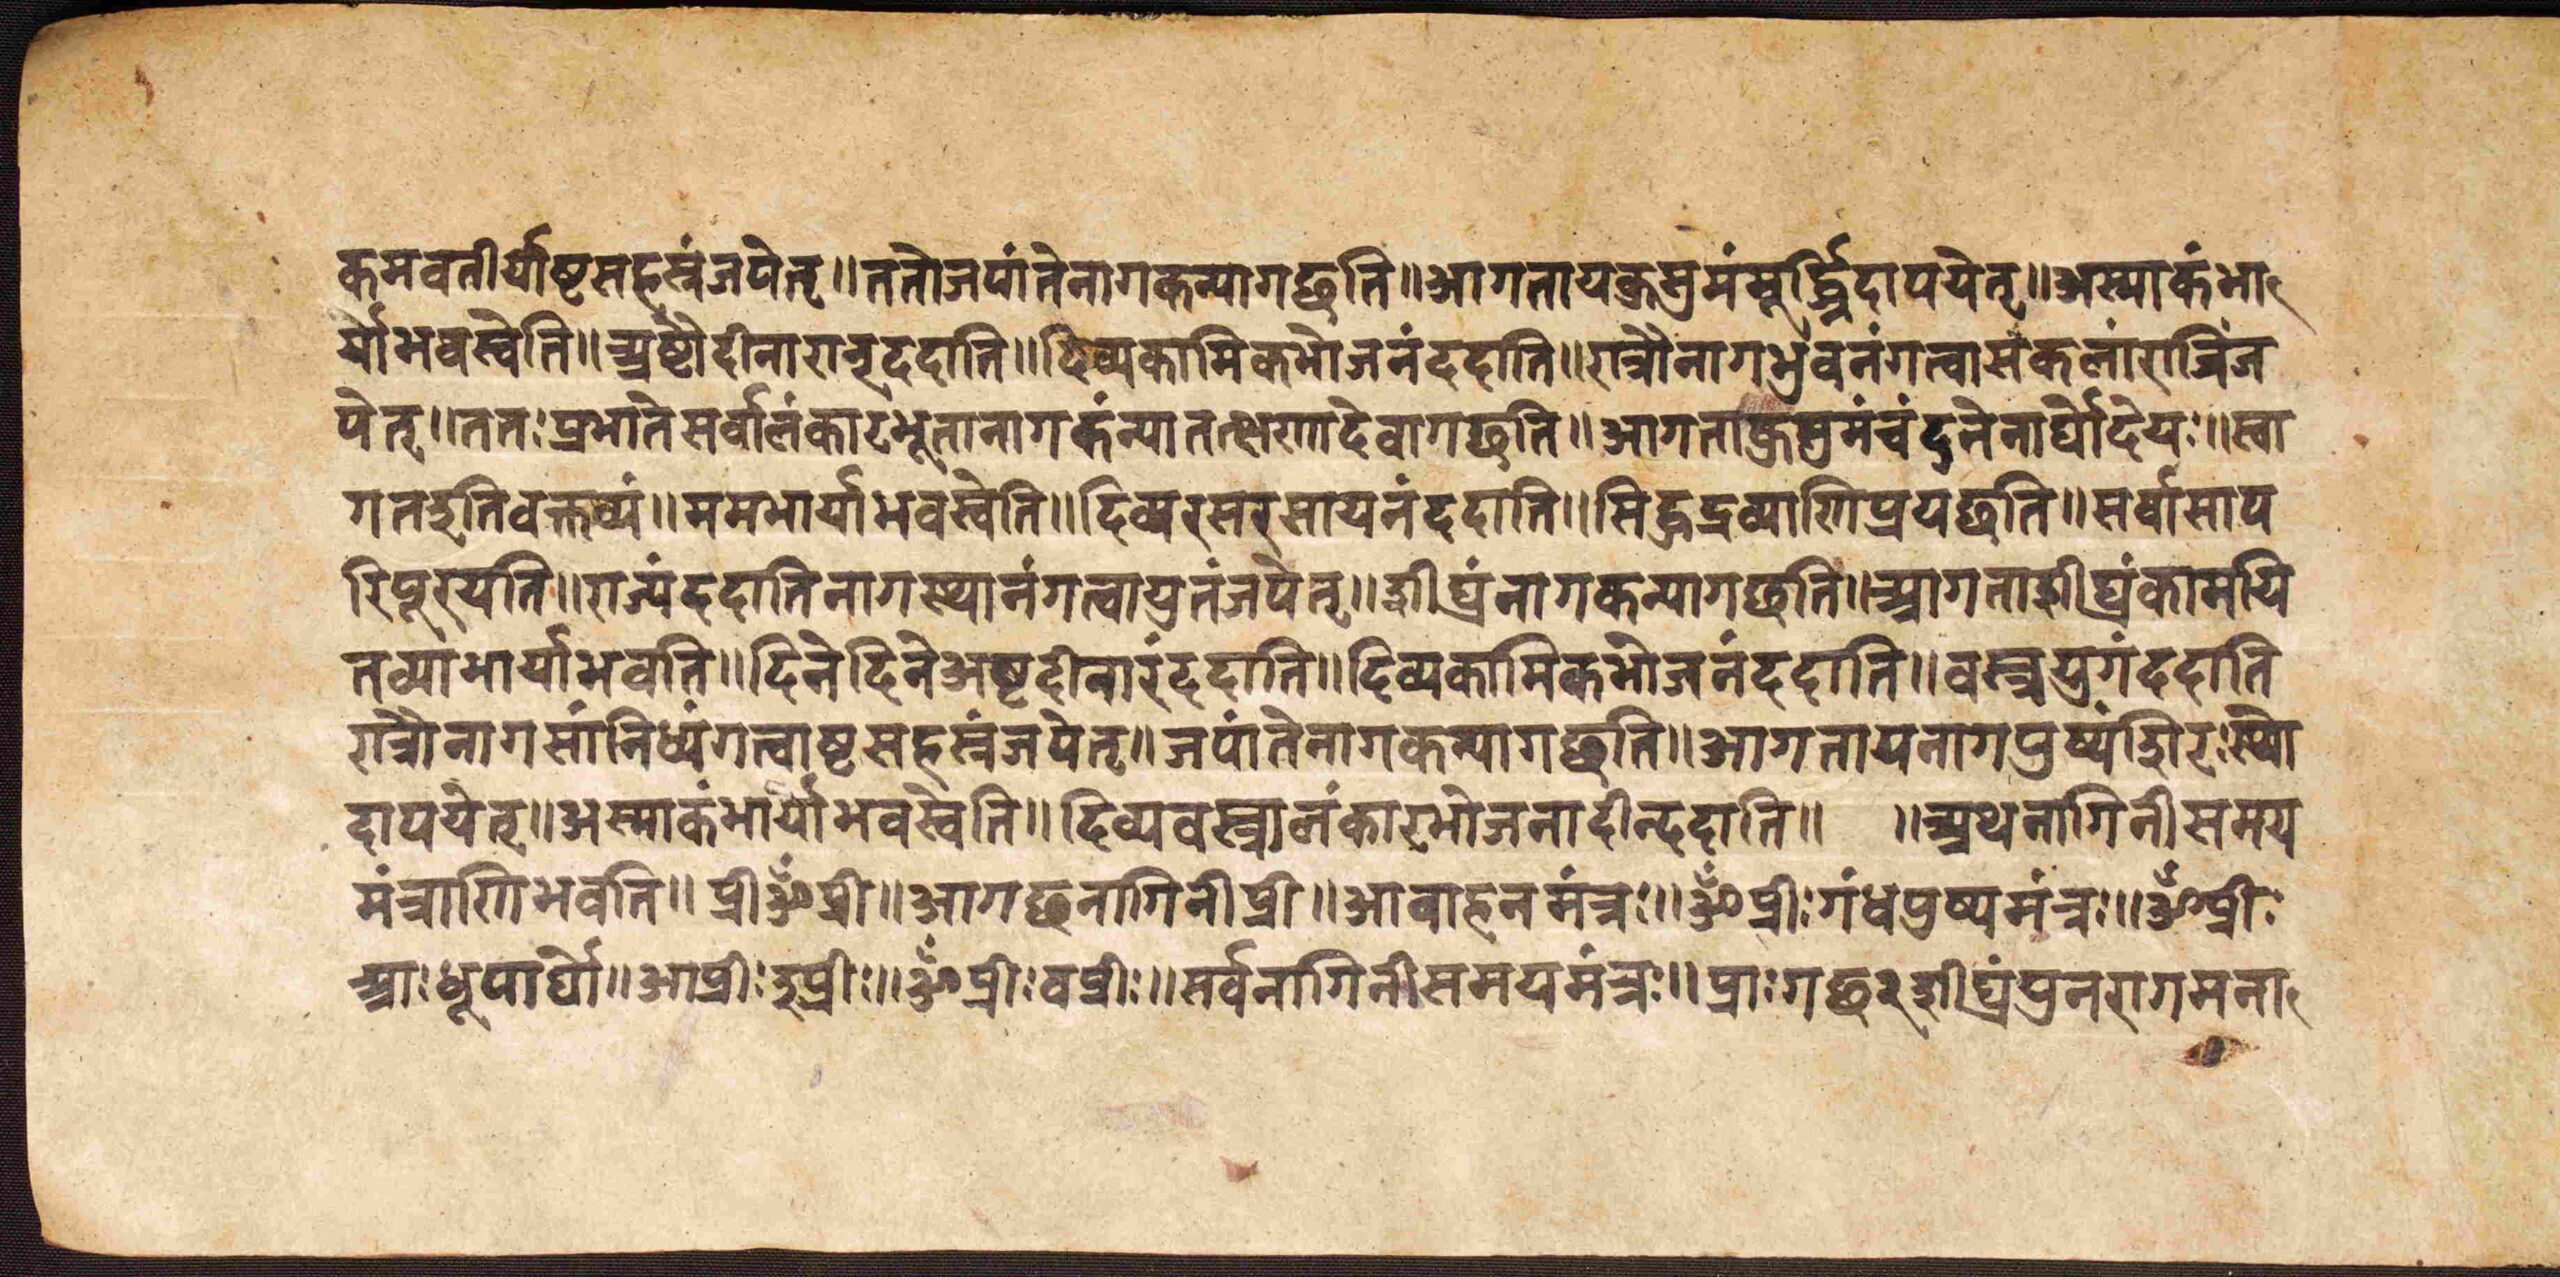 कमवतीर्याष्टसहस्रंजपेत्॥ततोजपांतेनागकन्यागछति॥आगतायकुसुमंमूर्द्ध्निदापयेत्॥अस्माकंभा
र्याभवस्वेति॥अष्टौदीनारान्ददाति॥दिव्यकामिकभोजनंददाति॥रात्रौनागभुवनंगत्वासकलांरात्रिंज
पेत्॥ततःप्रभातेसर्वालंकारभूतानागकंन्यातत्क्षणादेवागछति॥आगताकुसुमंचंदनेनार्घोदेयः॥स्वा
गतइतिवक्तव्यं॥ममभार्याभवस्वेति॥दिव्यरसरसायनंददाति॥सिद्धद्रव्याणिप्रयछति॥सर्वासाप
रिपूरयति॥राज्यंददातिनागस्थानंगत्वायुतंजपेत्॥शीघ्रंनागकन्यागछति॥आगताशीघ्रंकामयि
तव्याभार्याभवति॥दिनेदिनेअष्टदीनारंददाति॥दिव्यकामिकभोजनंददाति॥वस्त्रयुगंददाति
रात्रौनागसांनिध्यंगत्वाष्टसहस्रंजपेत्॥जपांतेनागकन्यागछति॥आगतायनागपुष्पंशिरःस्थो
दापयेत्॥अस्माकंभार्याभवस्वेति॥दिव्यवस्त्रालंकारभोजनादीन्ददाति॥ ॥अथनागिनीसमय
मंत्राणिभवति॥प्रीॐप्री॥आगछनागिनीप्री॥आवाहनमंत्रः॥ॐप्रीःगंधपुष्पमंत्रः॥ॐप्रीः
आःधूपार्घो॥आप्रीःइप्रीः॥ॐप्रीःवप्रीः॥सर्वनागिनीसमयमंत्रः॥प्राःगछ२शीघ्रंपुनरागमना